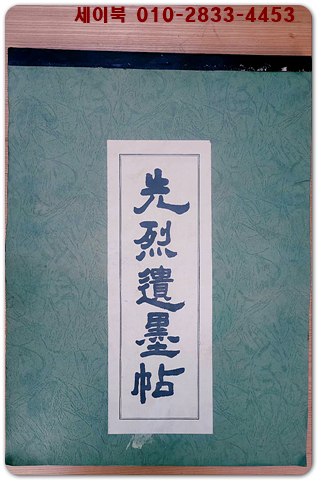 세이북 010-2833-4453
先烈遺墨帖